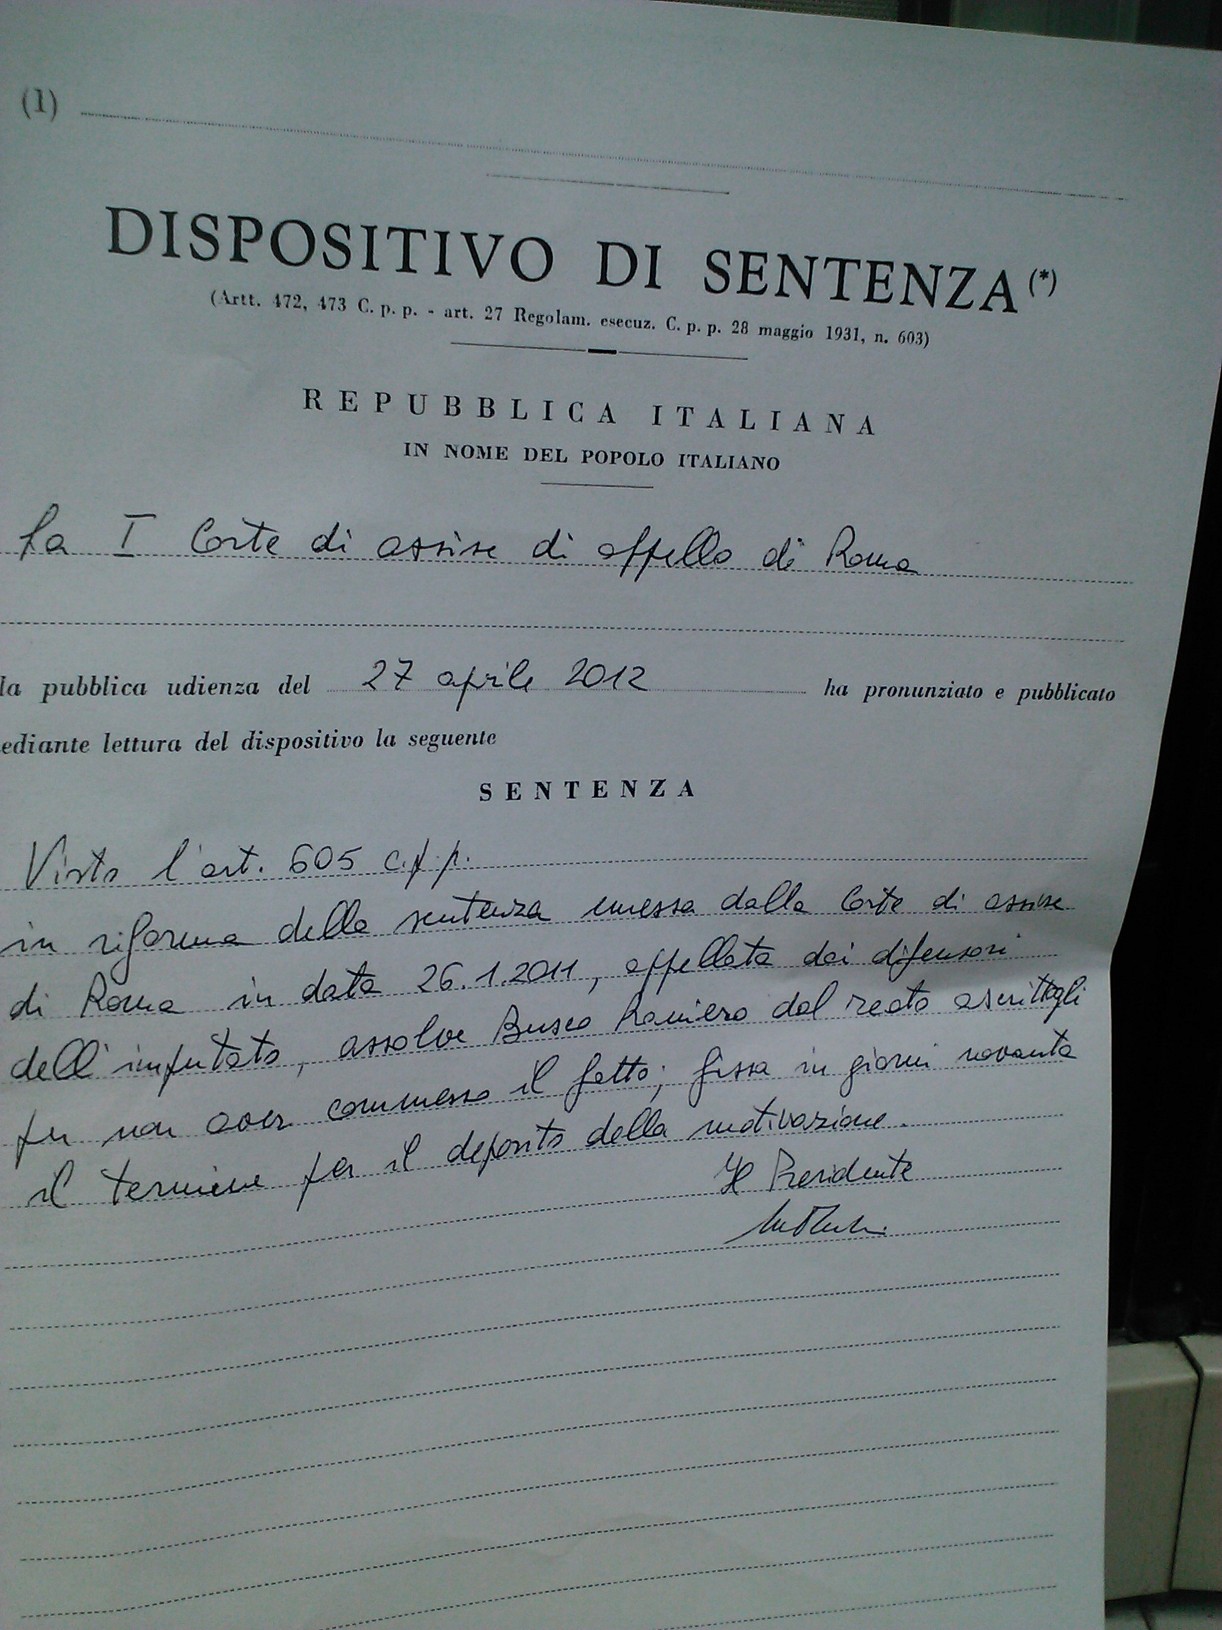 (1)
DISPOSITIVO DI SENTENZA (*)
(Artt. 472, 473 C. p. p. - art. 27 Regolam. esecuz. C. p. p. 28 maggio 1931, n. 603)
REPUBBLICA ITALIANA
IN NOME DEL POPOLO ITALIANO
La I Corte di assise di appello di Roma
la pubblica udienza del 27 aprile 2012 ha pronunziato e pubblicato
ediante lettura del dispositivo la seguente
SENTENZA
Visto l'art. 605 c.p.p.
in riforma della sentenza emessa dalla Corte di assise
di Roma in data 26.1.2011, appellata dai difensori
dell'imputato, assolve Busco Raniero dal reato ascrittogli
per non aver commesso il fatto; fissa in giorni novanta
il termine per il deposito della motivazione.
Il Presidente